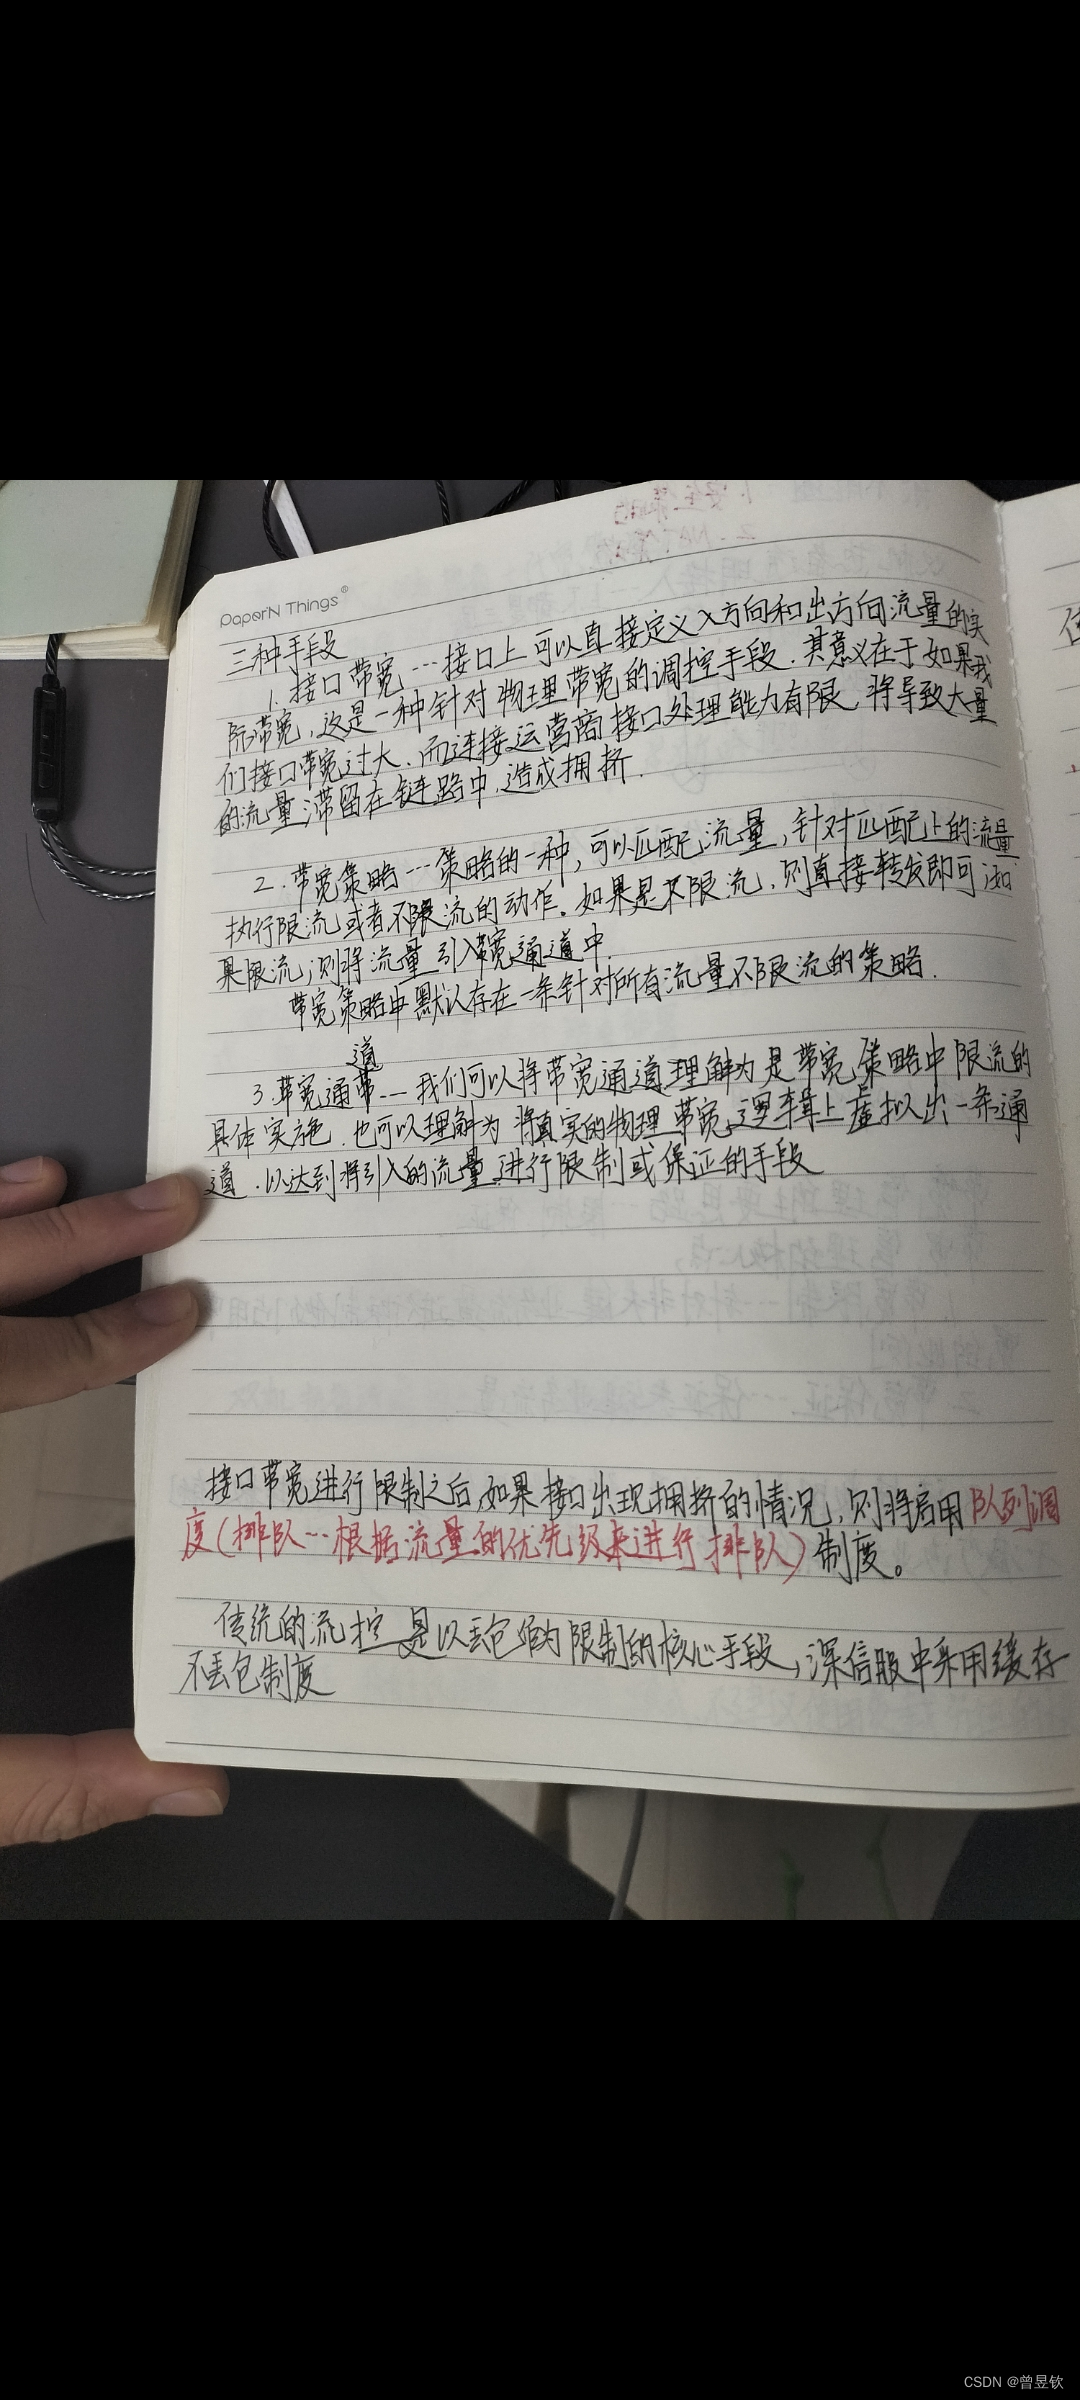 PaperN Things®
三种手段
1. 接口带宽 --- 接口上可以直接定义入方向和出方向流量的实
际带宽,这是一种针对物理带宽的调控手段.其意义在于如果我
们接口带宽过大.而连接运营商接口处理能力有限,将导致大量
的流量滞留在链路中,造成拥挤.
2. 带宽策略 --- 策略的一种,可以匹配流量,针对匹配上的流量
执行限流或者不限流的动作。如果是不限流,则直接转发即可,如
果限流,则将流量引入带宽通道中.
带宽策略中默认存在一条针对所有流量不限流的策略.
道
3. 带宽通带 --- 我们可以将带宽通道理解为是带宽策略中限流的
具体实施.也可以理解为将真实的物理带宽逻辑上虚拟出一条通
道.以达到将引入的流量进行限制或保证的手段
接口带宽进行限制之后,如果接口出现拥挤的情况,则将启用队列调
度(排队---根据流量的优先级来进行排队)制度。
传统的流控是以丢包为限制的核心手段,深信服中采用缓存
不丢包制度
CSDN @曾昱钦